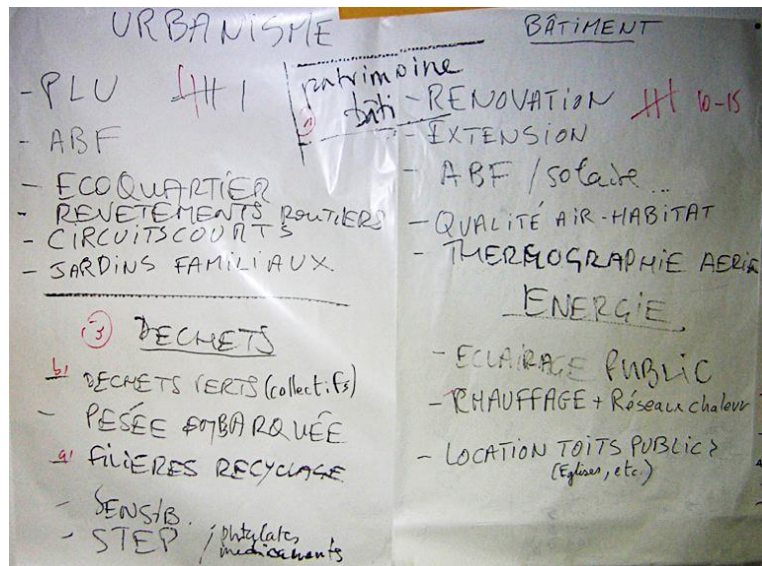 URBANISME
- PLU HH 1
- ABF
- ECOQUARTIER
- REVETEMENTS ROUTIERS
- CIRCUITS COURTS
- JARDINS FAMILIAUX
DECHETS
b) DECHETS VERTS (collectifs)
- PESÉE EMBARQUÉE
a) FILIERES RECYCLAGE
- SENSIB.
- STEP / phtylates
medicaments
patrimoine
bâti
BÂTIMENT
- RENOVATION HH 10-15
- EXTENSION
- ABF / solaire...
- QUALITÉ AIR-HABITAT
- THERMOGRAPHIE AERIE
ENERGIE
- ECLAIRAGE PUBLIC
- CHAUFFAGE + Réseaux chaleur
- LOCATION TOITS PUBLICS
(Eglises, etc.)